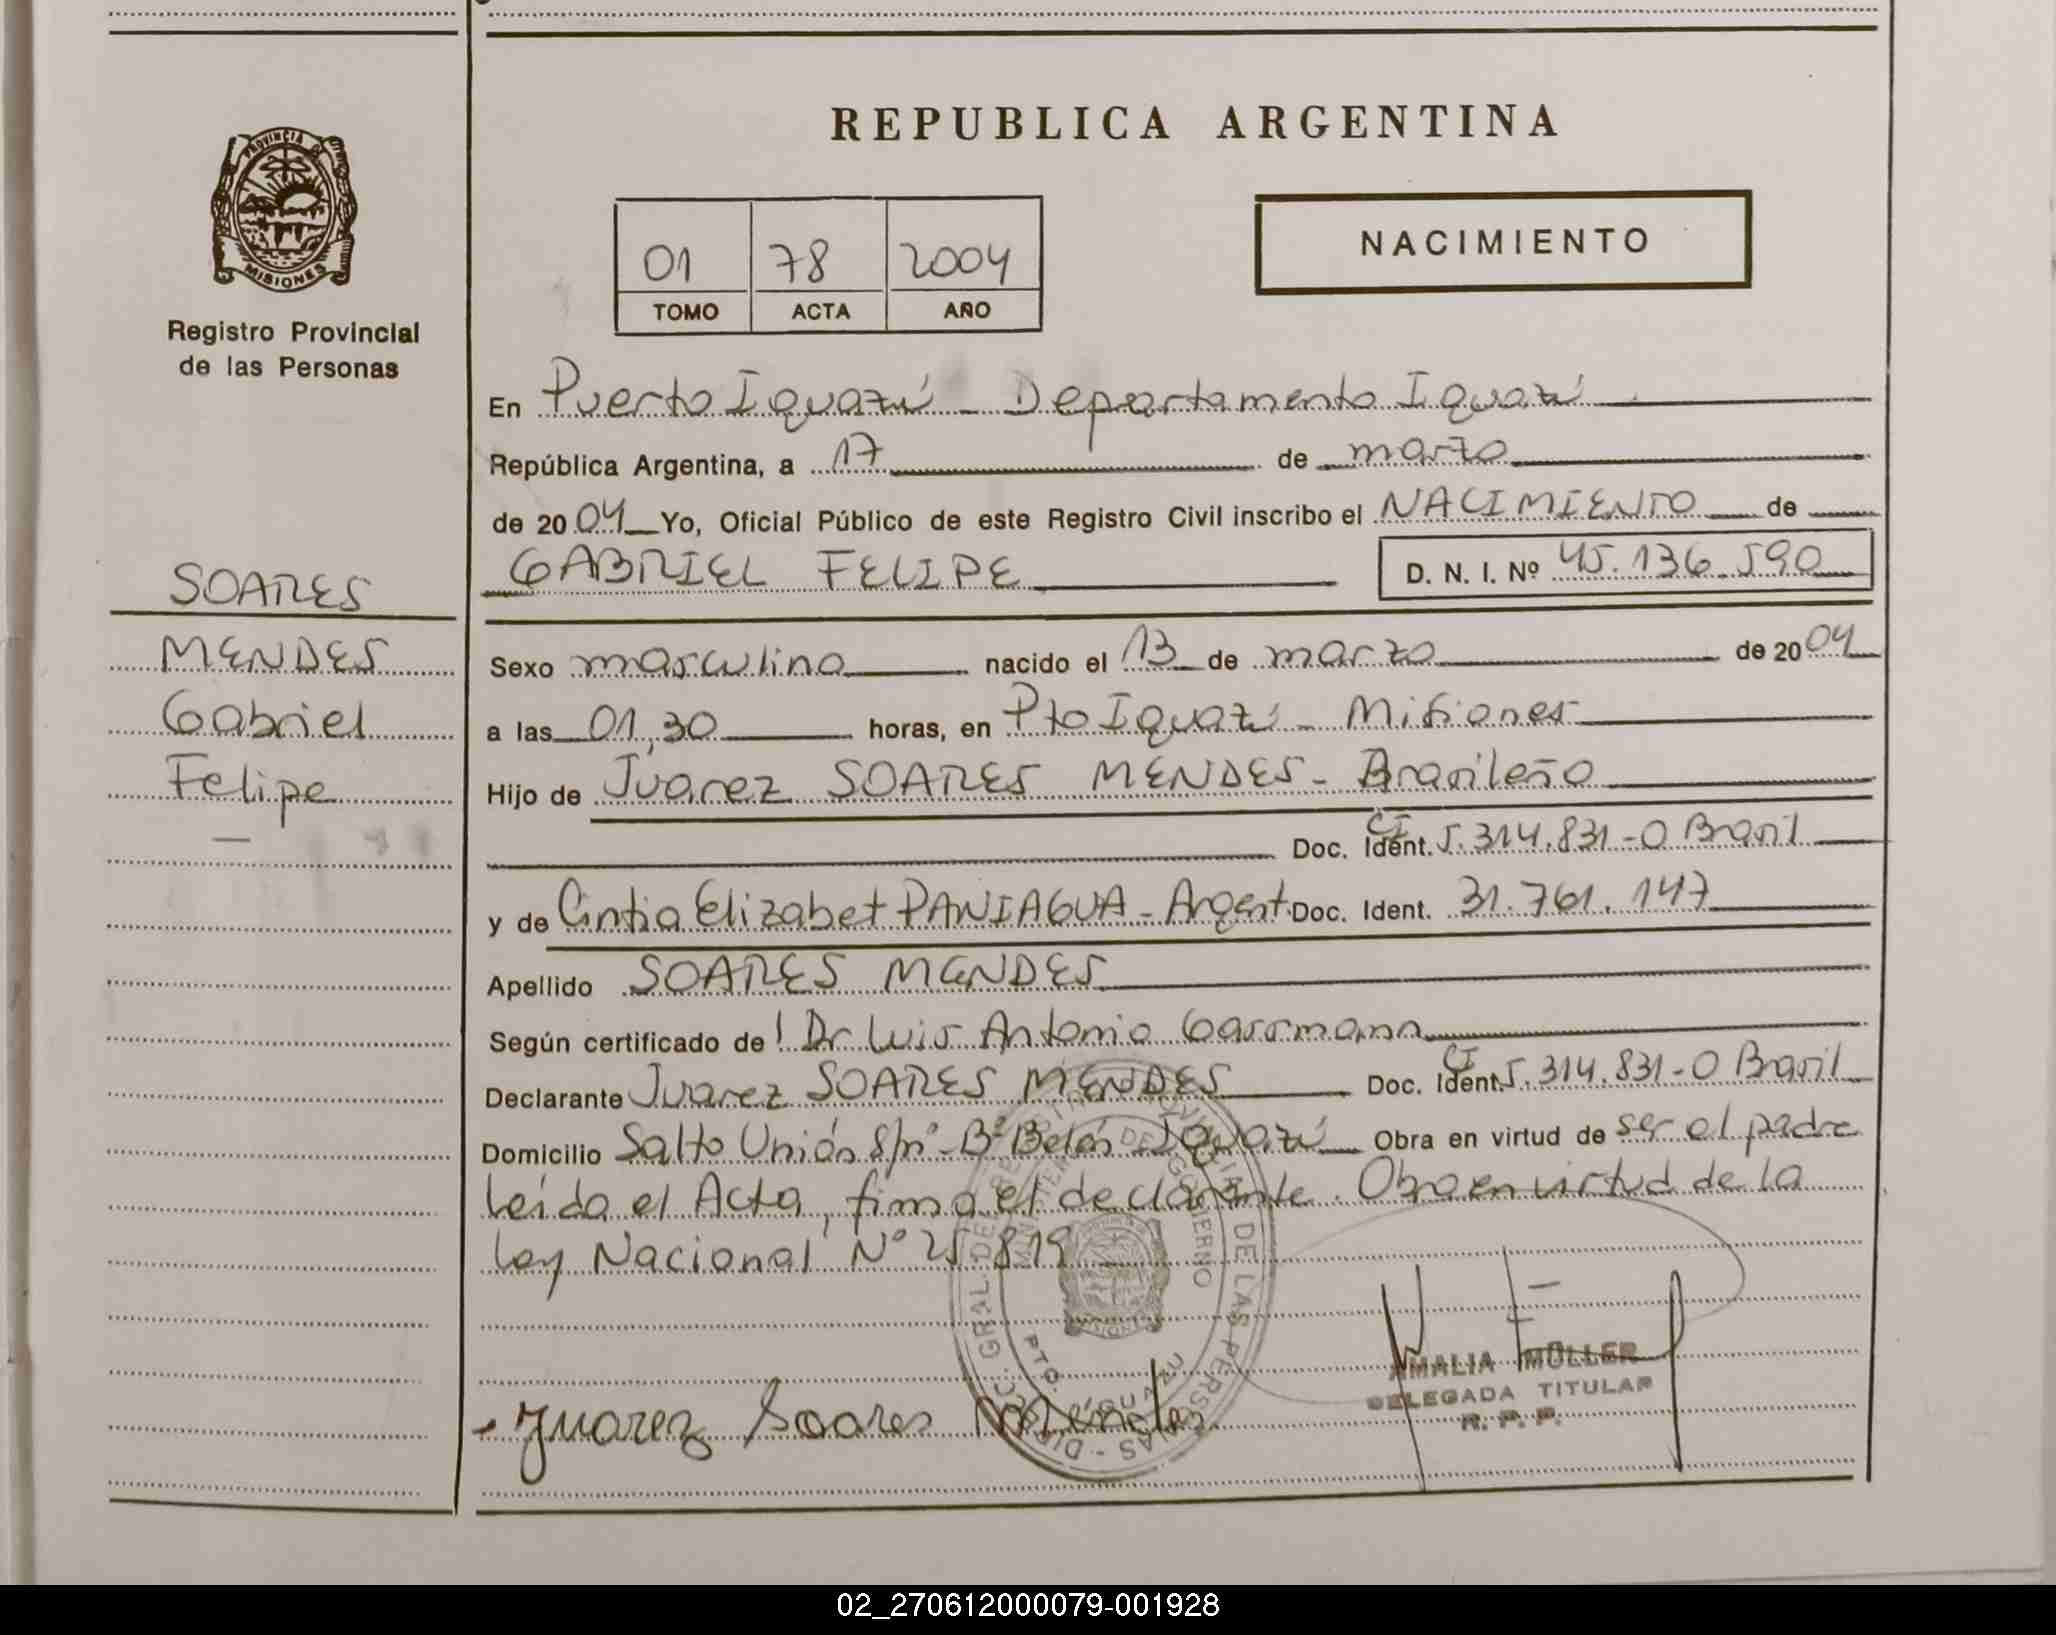 REPUBLICA ARGENTINA
PROVINCIA DE
MISIONES
Registro Provincial
de las Personas
01 78 2004
TOMO ACTA AÑO
NACIMIENTO
En Puerto Iguazú - Departamento Iguazú
República Argentina, a 17 de marzo
de 2004 Yo, Oficial Público de este Registro Civil inscribo el NACIMIENTO de
GABRIEL FELIPE D. N. I. Nº 45.136.590
SOARES
MENDES
Gabriel
Felipe
Sexo masculino nacido el 13 de marzo de 2004
a las 01,30 horas, en Pto Iguazú - Misiones
Hijo de Juarez SOARES MENDES - Brasileño
Doc. Ident. CI 5.314.831-0 Brasil
y de Cintia Elizabet PANIAGUA - Argent. Doc. Ident. 31.761.147
Apellido SOARES MENDES
Según certificado de Dr Luis Antonio
Declarante Juarez SOARES MENDES Doc. Ident. CI 5.314.831-0 Brasil
Domicilio Salto Unión s/nº - Bº Belén Iguazú Obra en virtud de ser el padre
leída el Acta, firma el declarante. Obra en virtud de la
Ley Nacional Nº 25.819
Juarez Soares Mendes
AMALIA MÜLLER
DELEGADA TITULAR
R. P. P.
02_270612000079-001928